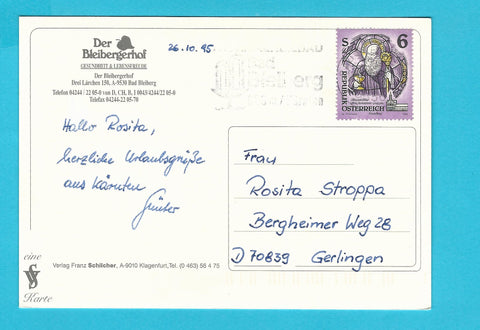 Der
Bleibergerhof
GESUNDHEIT & LEBENSFREUDE
Der Bleibergerhof
Drei Lärchen 150, A-9530 Bad Bleiberg
Telefon 04244 / 22 05-0 von D, CH, B, I 0043/4244/22 05-0
Telefax 04244-22 05-70
26.10.95
S 6
REPUBLIK
ÖSTERREICH
Hallo Rosita,
herzliche Urlaubsgrüße
aus Kärnten
Günter
Frau
Rosita Stroppa
Bergheimer Weg 28
D 70839 Gerlingen
Verlag Franz Schilcher, A-9010 Klagenfurt, Tel. (0 463) 56 4 75
eine
Karte